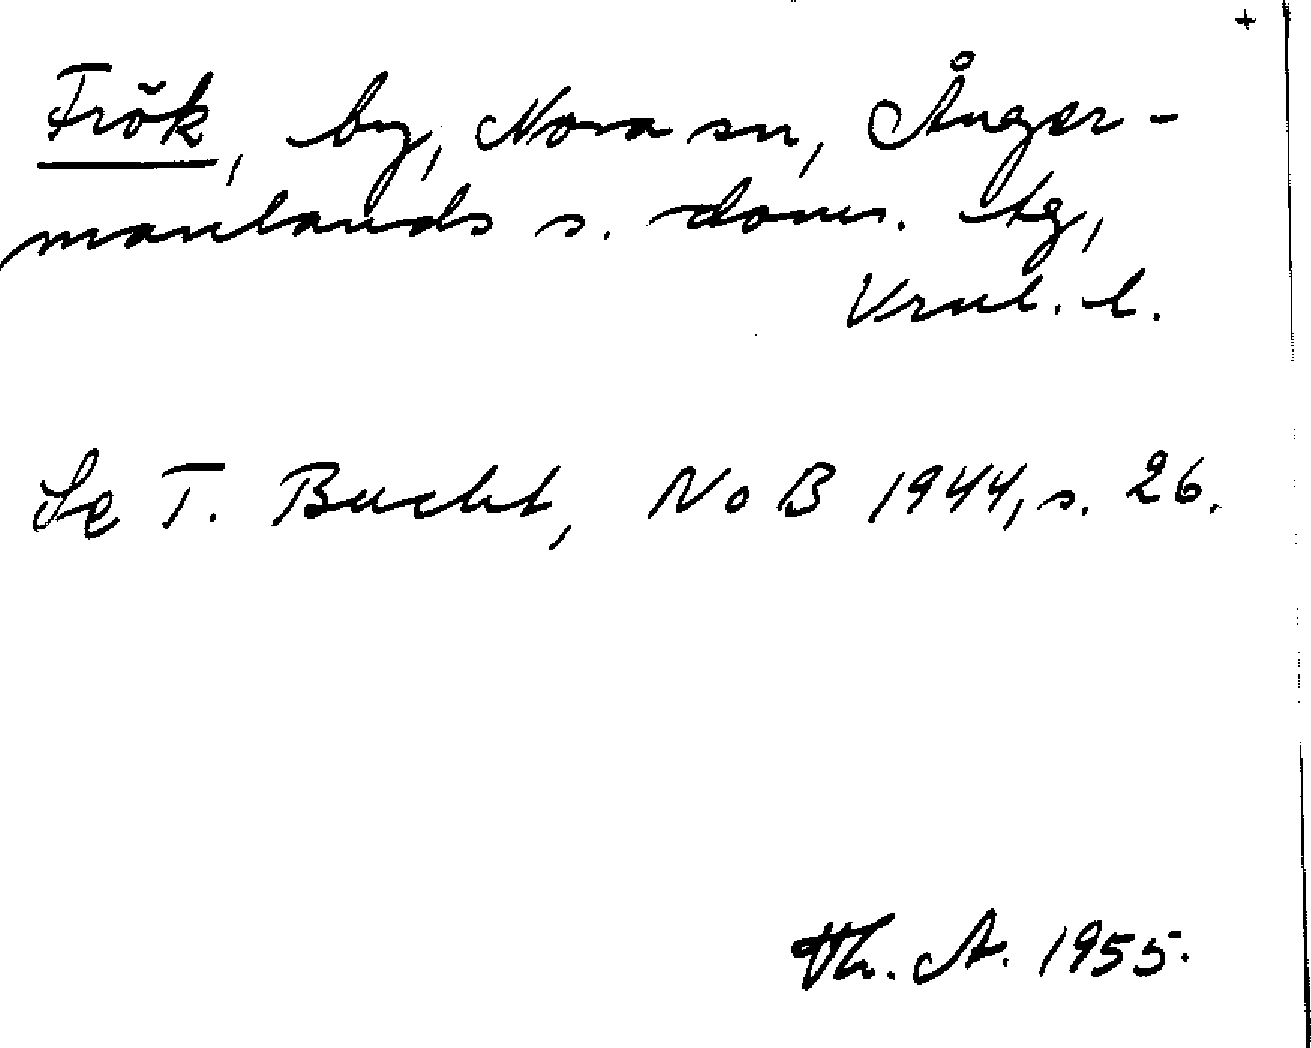 +
Frök, by, Nora sn, Ånger-
manlands s. doms. tg,
Vrnl. l.
Se T. Bucht, NoB 1944, s. 26.
Th. A. 1955.